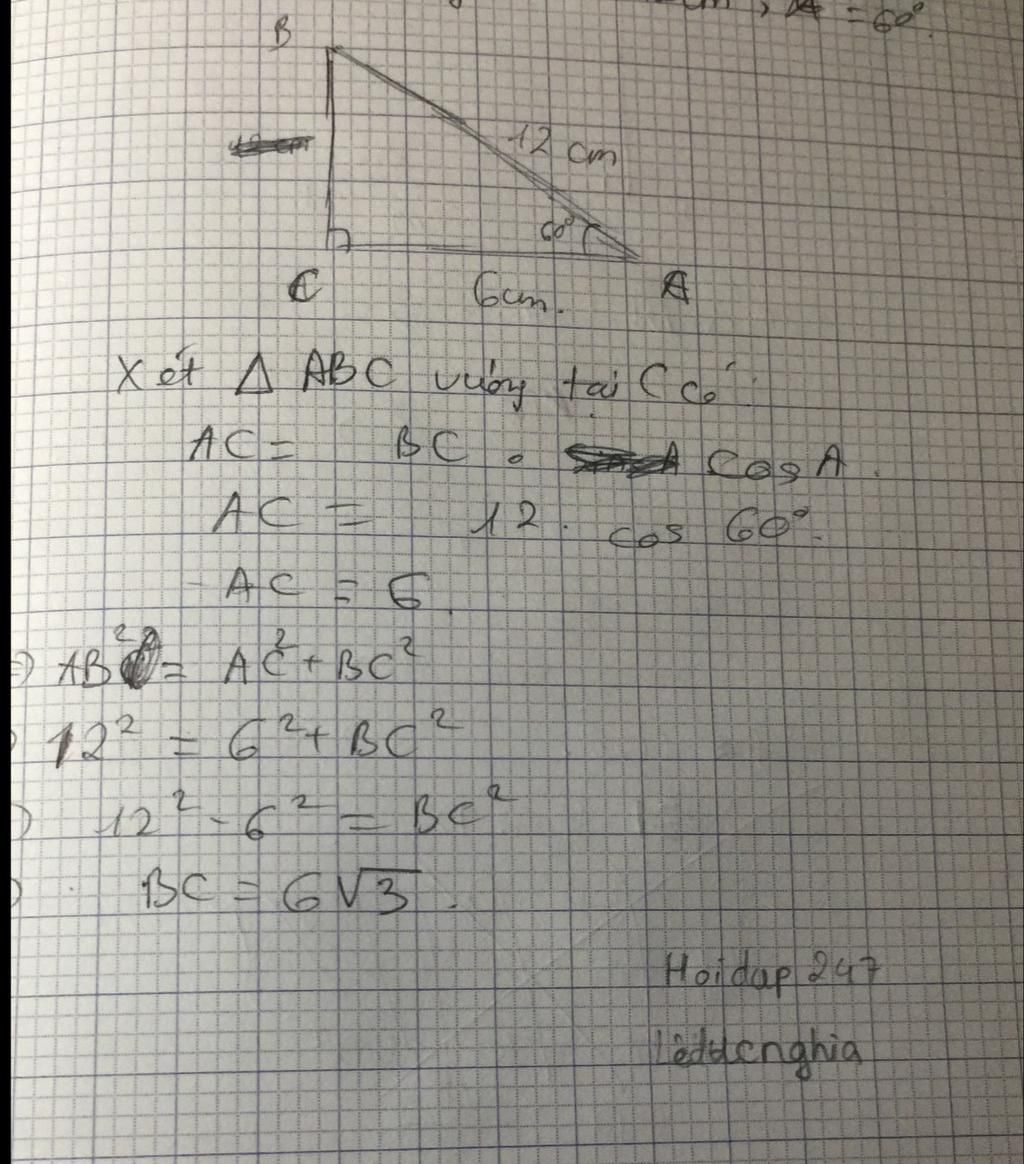 = 60°.
B
12 cm
60°
C
6cm.
A
Xét Δ ABC vuông tại C có:
AC = BC . cos A.
AC = 12. cos 60°.
AC = 6.
AB² = AC² + BC²
12² = 6² + BC²
12² - 6² = BC²
BC = 6√3.
Hoidap 247